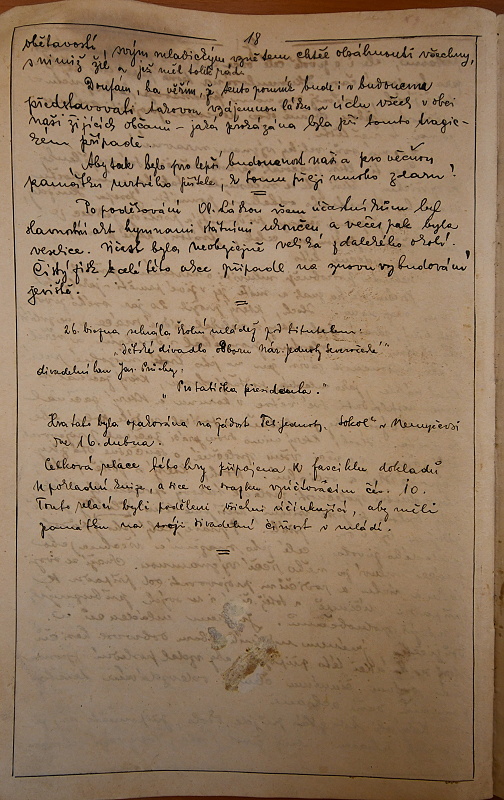 18
obětavostí, svým mladickým vznětem chtěl obsáhnouti všechny,
s nimiž žil a jež měl tolik rád.
Doufám, ba věřím, že tento pomník bude i v budoucnu
představovati takovou vzájemnou lásku a úctu všech v obci
naší žijících občanů – jaká prokázána byla při tomto tragic-
kém případě.
Aby tak bylo pro lepší budoucnost naši a pro věčnou
památku mrtvého přítele, k tomu přeji mnoho zdaru!
Po poděkování Ol. Láskou všem účastníkům byl
slavnostní akt hymnami státními ukončen a večer pak byla
veselice. Účast byla neobyčejně veliká z dalekého okolí.
Čistý zisk z celé této akce připadl na znovuvybudování
jeviště.
26. března sehrála školní mládež pod titulem:
„Dětské divadlo odboru Nár. jednoty severočeské"
divadelní hru Jar. Průchy:
„Pro tatíčka presidenta."
Hra tato byla opakována na žádost Těl. jednoty „Sokol" v
dne 16. dubna.
Celková relace této hry připojena k fasciklu dokladů
k pokladní knize, a sice ve svazku vyúčtováním čís. 10.
Touto relací byli poděleni všichni účinkující, aby měli
památku na svoji divadelní činnost v mládí.